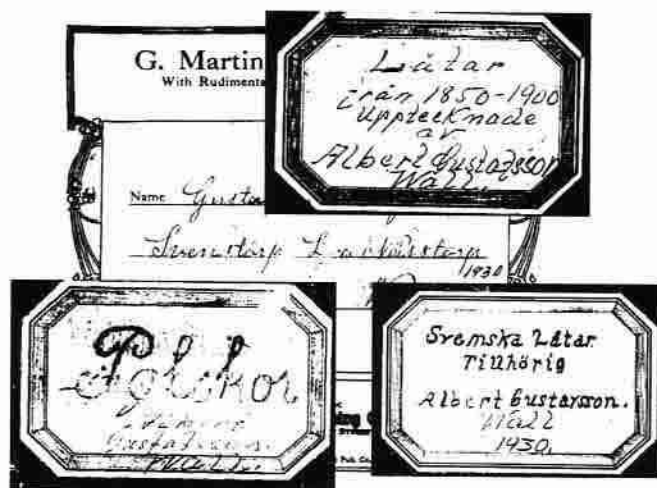 G. Martin
With Rudiments
Låtar
från 1850-1900
Upptecknade
av
Albert Gustafsson
Wall.
Name Gusta
Svenstorp
1930
Polskor
Gustafsson
Wall.
Svenska Låtar
Tillhörig
Albert Gustarsson.
Wall
1930.